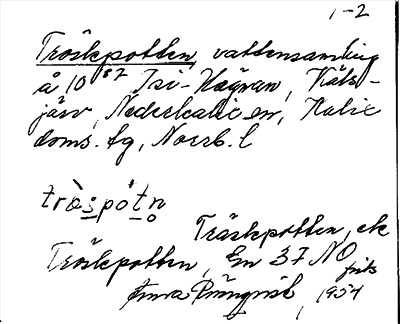 1-2
Träskpotten, vattensamling
å 10⁸² Isi-Hägnan, Käls-
järv, Nederkalix sn, Kalix
doms. tg, Norrb. l
träspótn
Träskpotten, ek
Träskpotten, En 37 NO
frits
1954